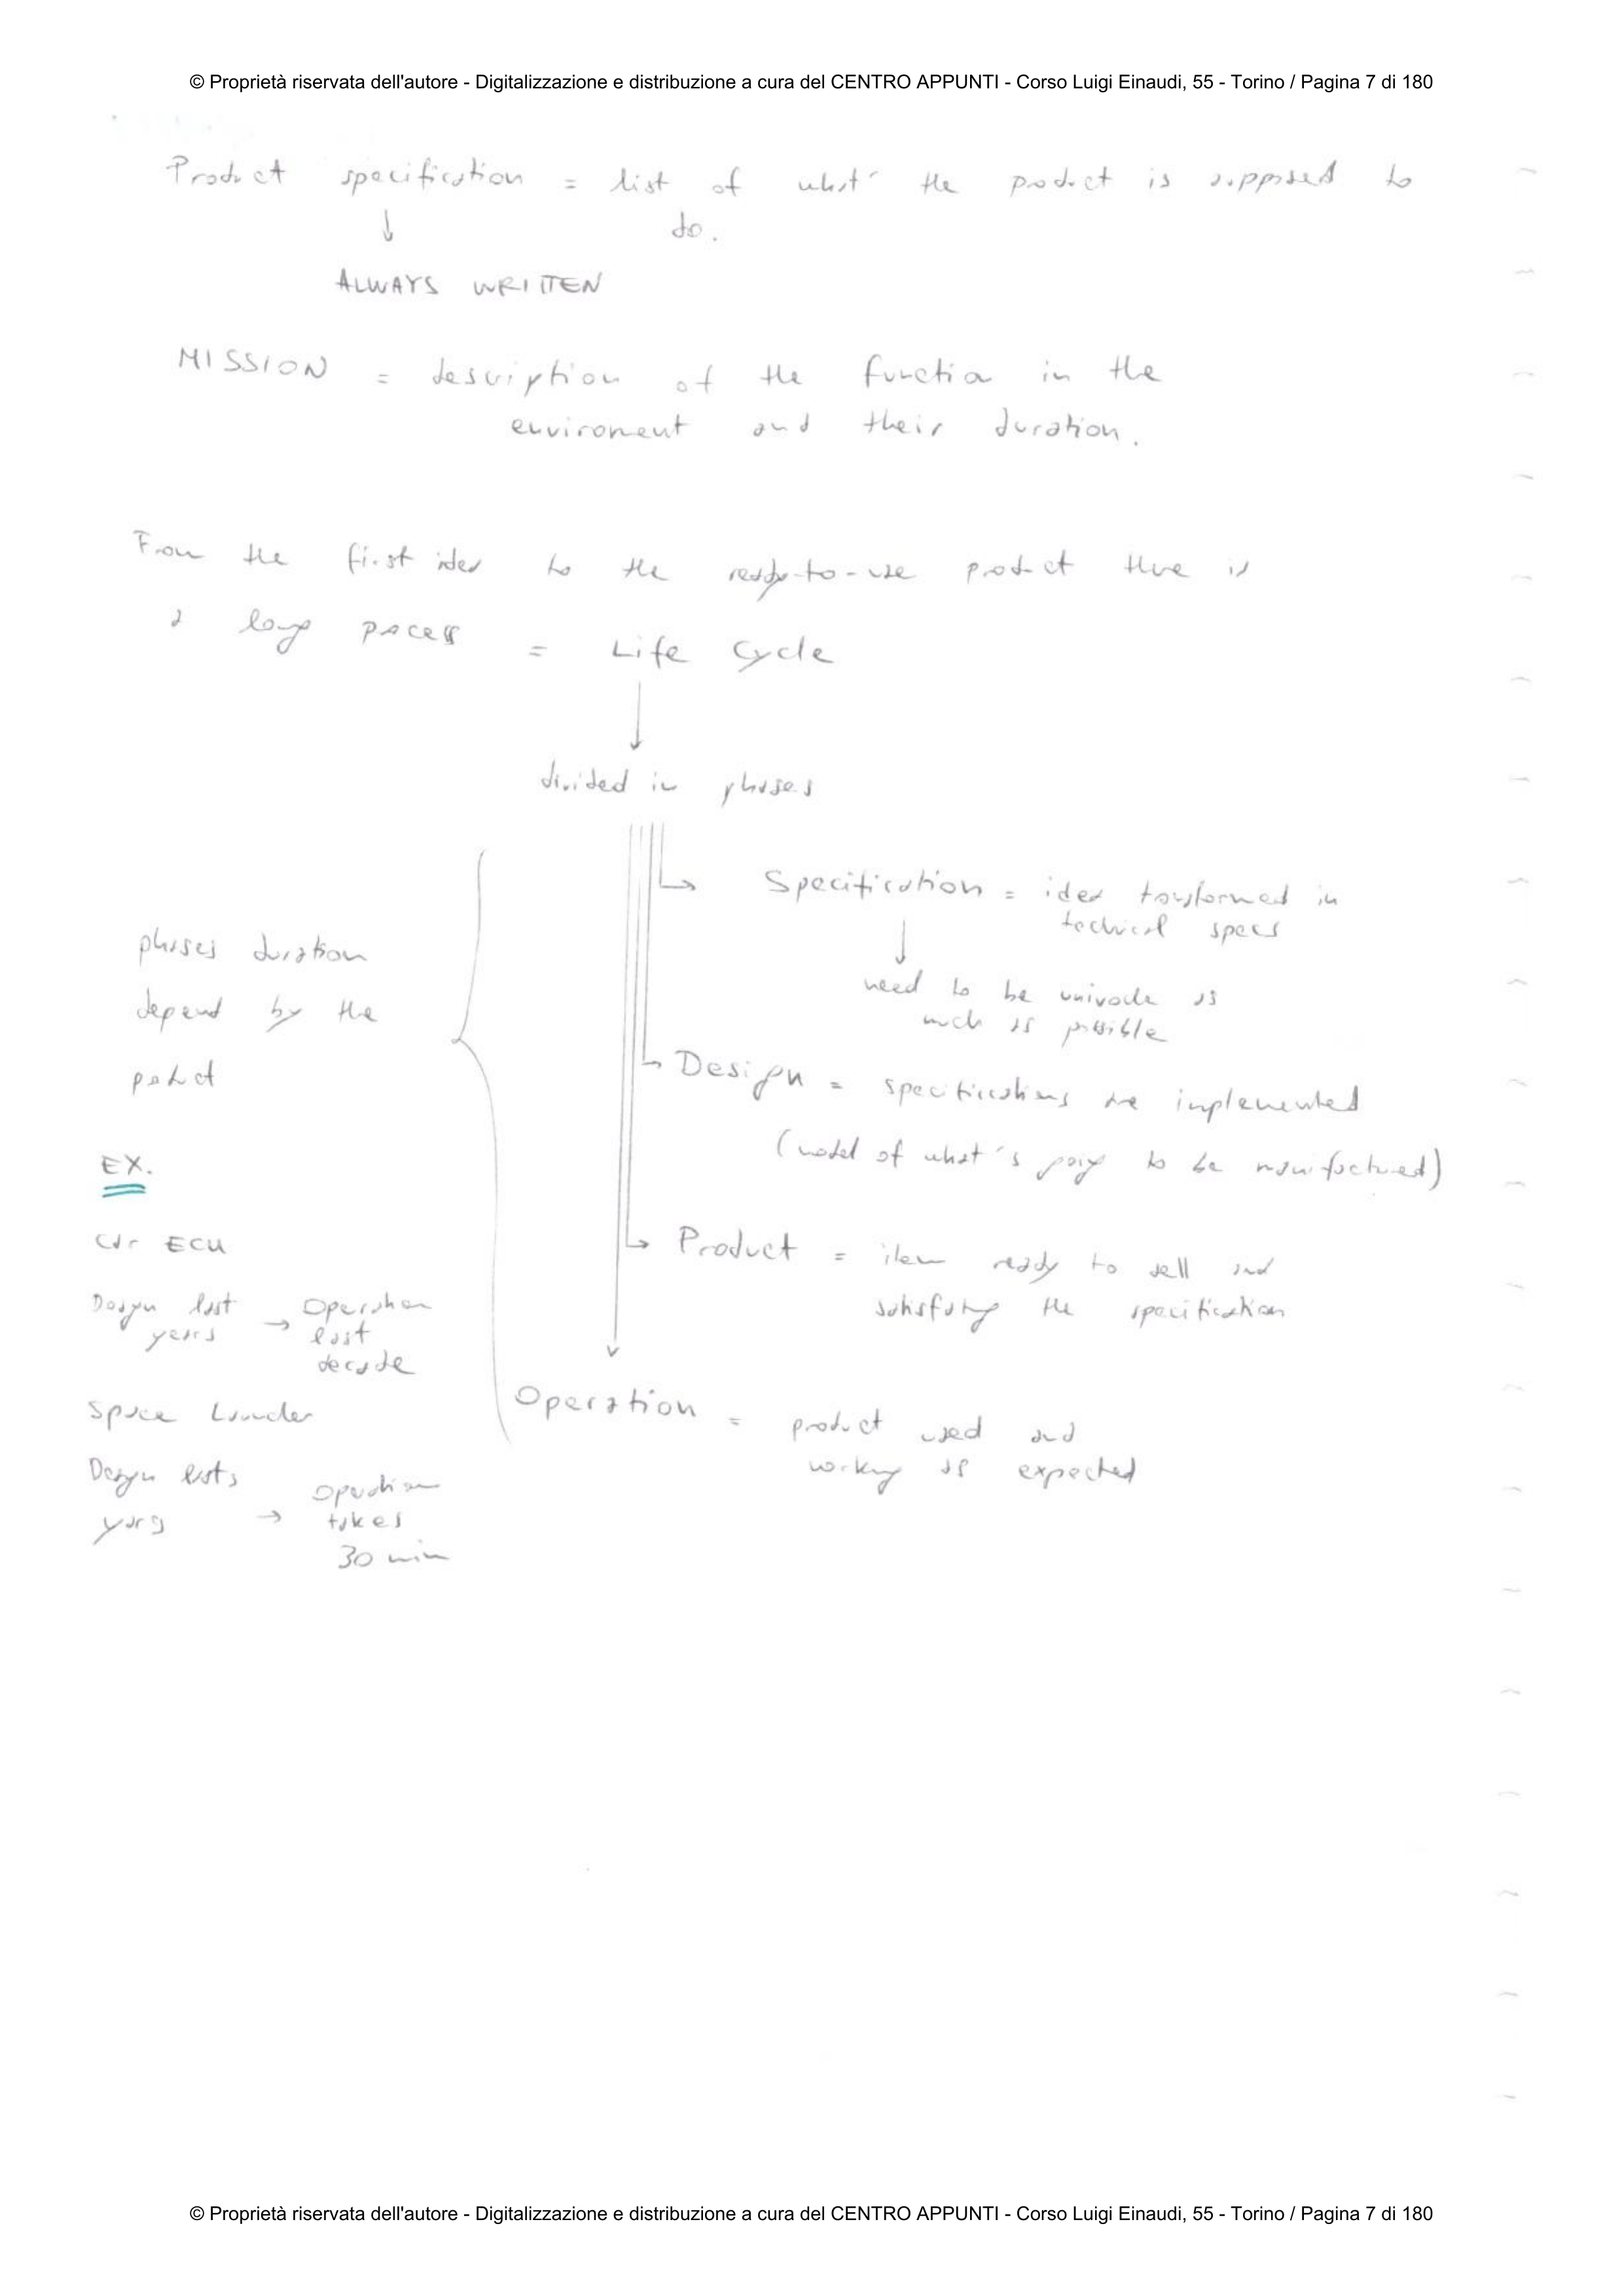 © Proprietà riservata dell'autore - Digitalizzazione e distribuzione a cura del CENTRO APPUNTI - Corso Luigi Einaudi, 55 - Torino / Pagina 7 di 180
Product specification = list of what the product is supposed to
do.
ALWAYS WRITTEN
MISSION = description of the function in the
enviroment and their duration.
From the first idea to the ready-to-use product there is
a long process = Life Cycle
divided in phases
Specification = idea transformed in
technical specs
need to be univocle as
much as possible
phases duration
depend by the
product
Design = specifications are implemented
(model of what's going to be manifactured)
Product = item ready to sell and
satisfying the specification
Operation = product used and
working as expected
EX.
Car ECU
Design last
years → Operation
last
decade
Space Launcher
Design lasts
years → Operation
takes
30 min
© Proprietà riservata dell'autore - Digitalizzazione e distribuzione a cura del CENTRO APPUNTI - Corso Luigi Einaudi, 55 - Torino / Pagina 7 di 180